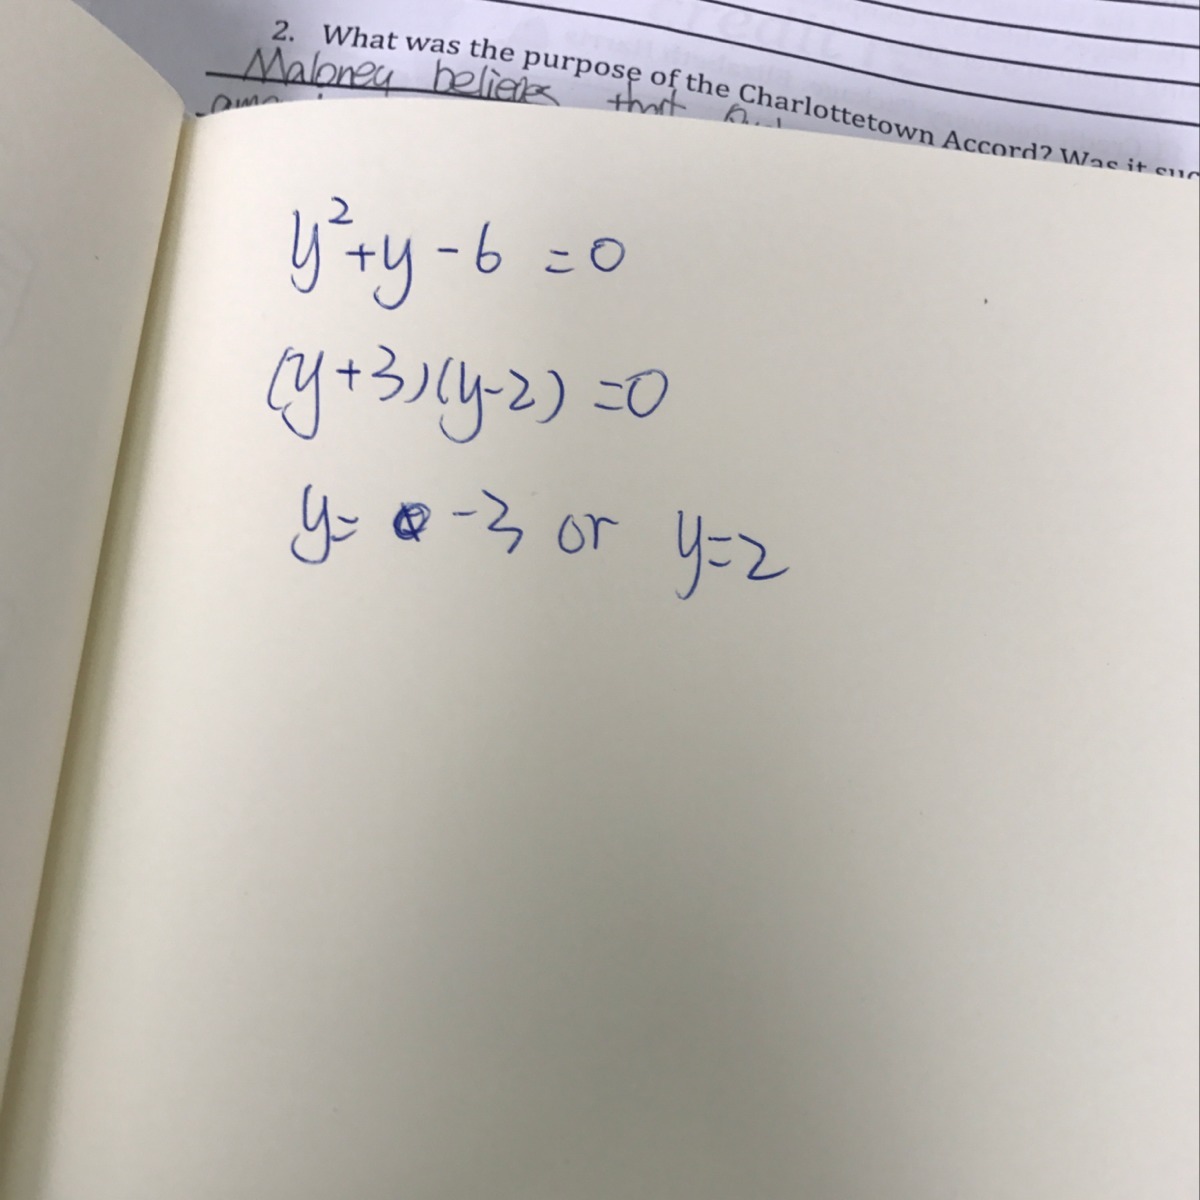 2. What was the purpose of the Charlottetown Accord? Was it suc
Maloney believes that
y²+y-6 =0
(y+3)(y-2) =0
y= -3 or y=2